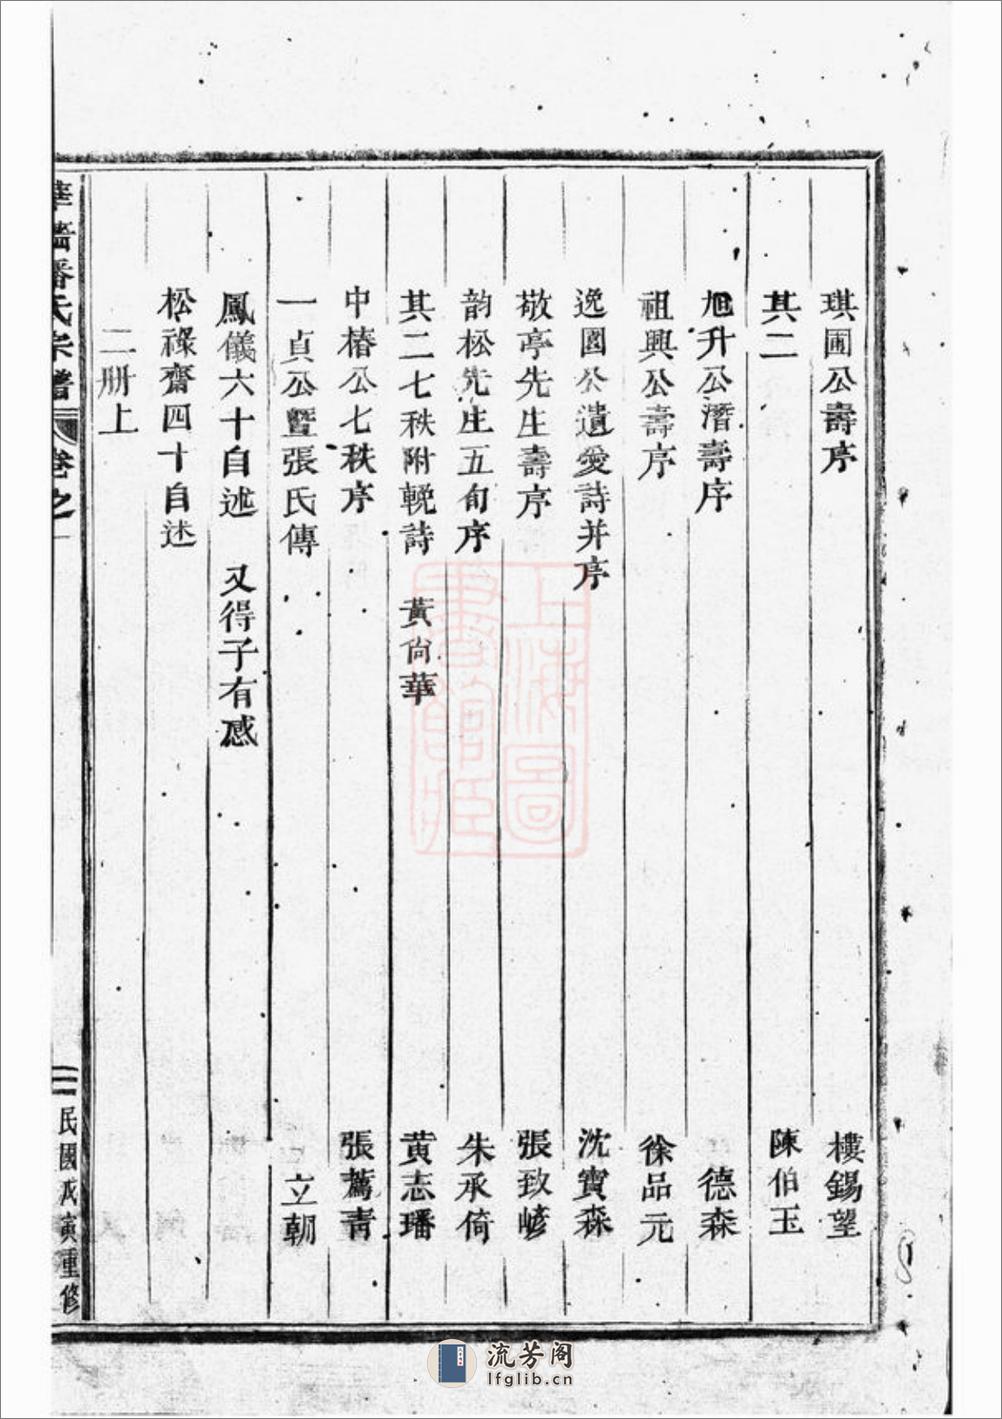 琪圃公壽序　樓錫望
其二　陳伯玉
旭升公潛壽序　德森
祖興公壽序　徐品元
逸園公遺愛詩并序　沈寶森
敬亭先生壽序　張致嵃
韵松先生五旬序　朱承倚
其二七秩附輓詩　黃尙華　黄志璠
中椿公七秩序　張薦青
一貞公暨張氏傳　立朝
鳳儀六十自述　又得子有感
松祿齋四十自述
二册上
華墻潘氏宗譜　卷之一
二　民國戊寅重修
上海圖
書館藏
流芳阁
lfglib.cn